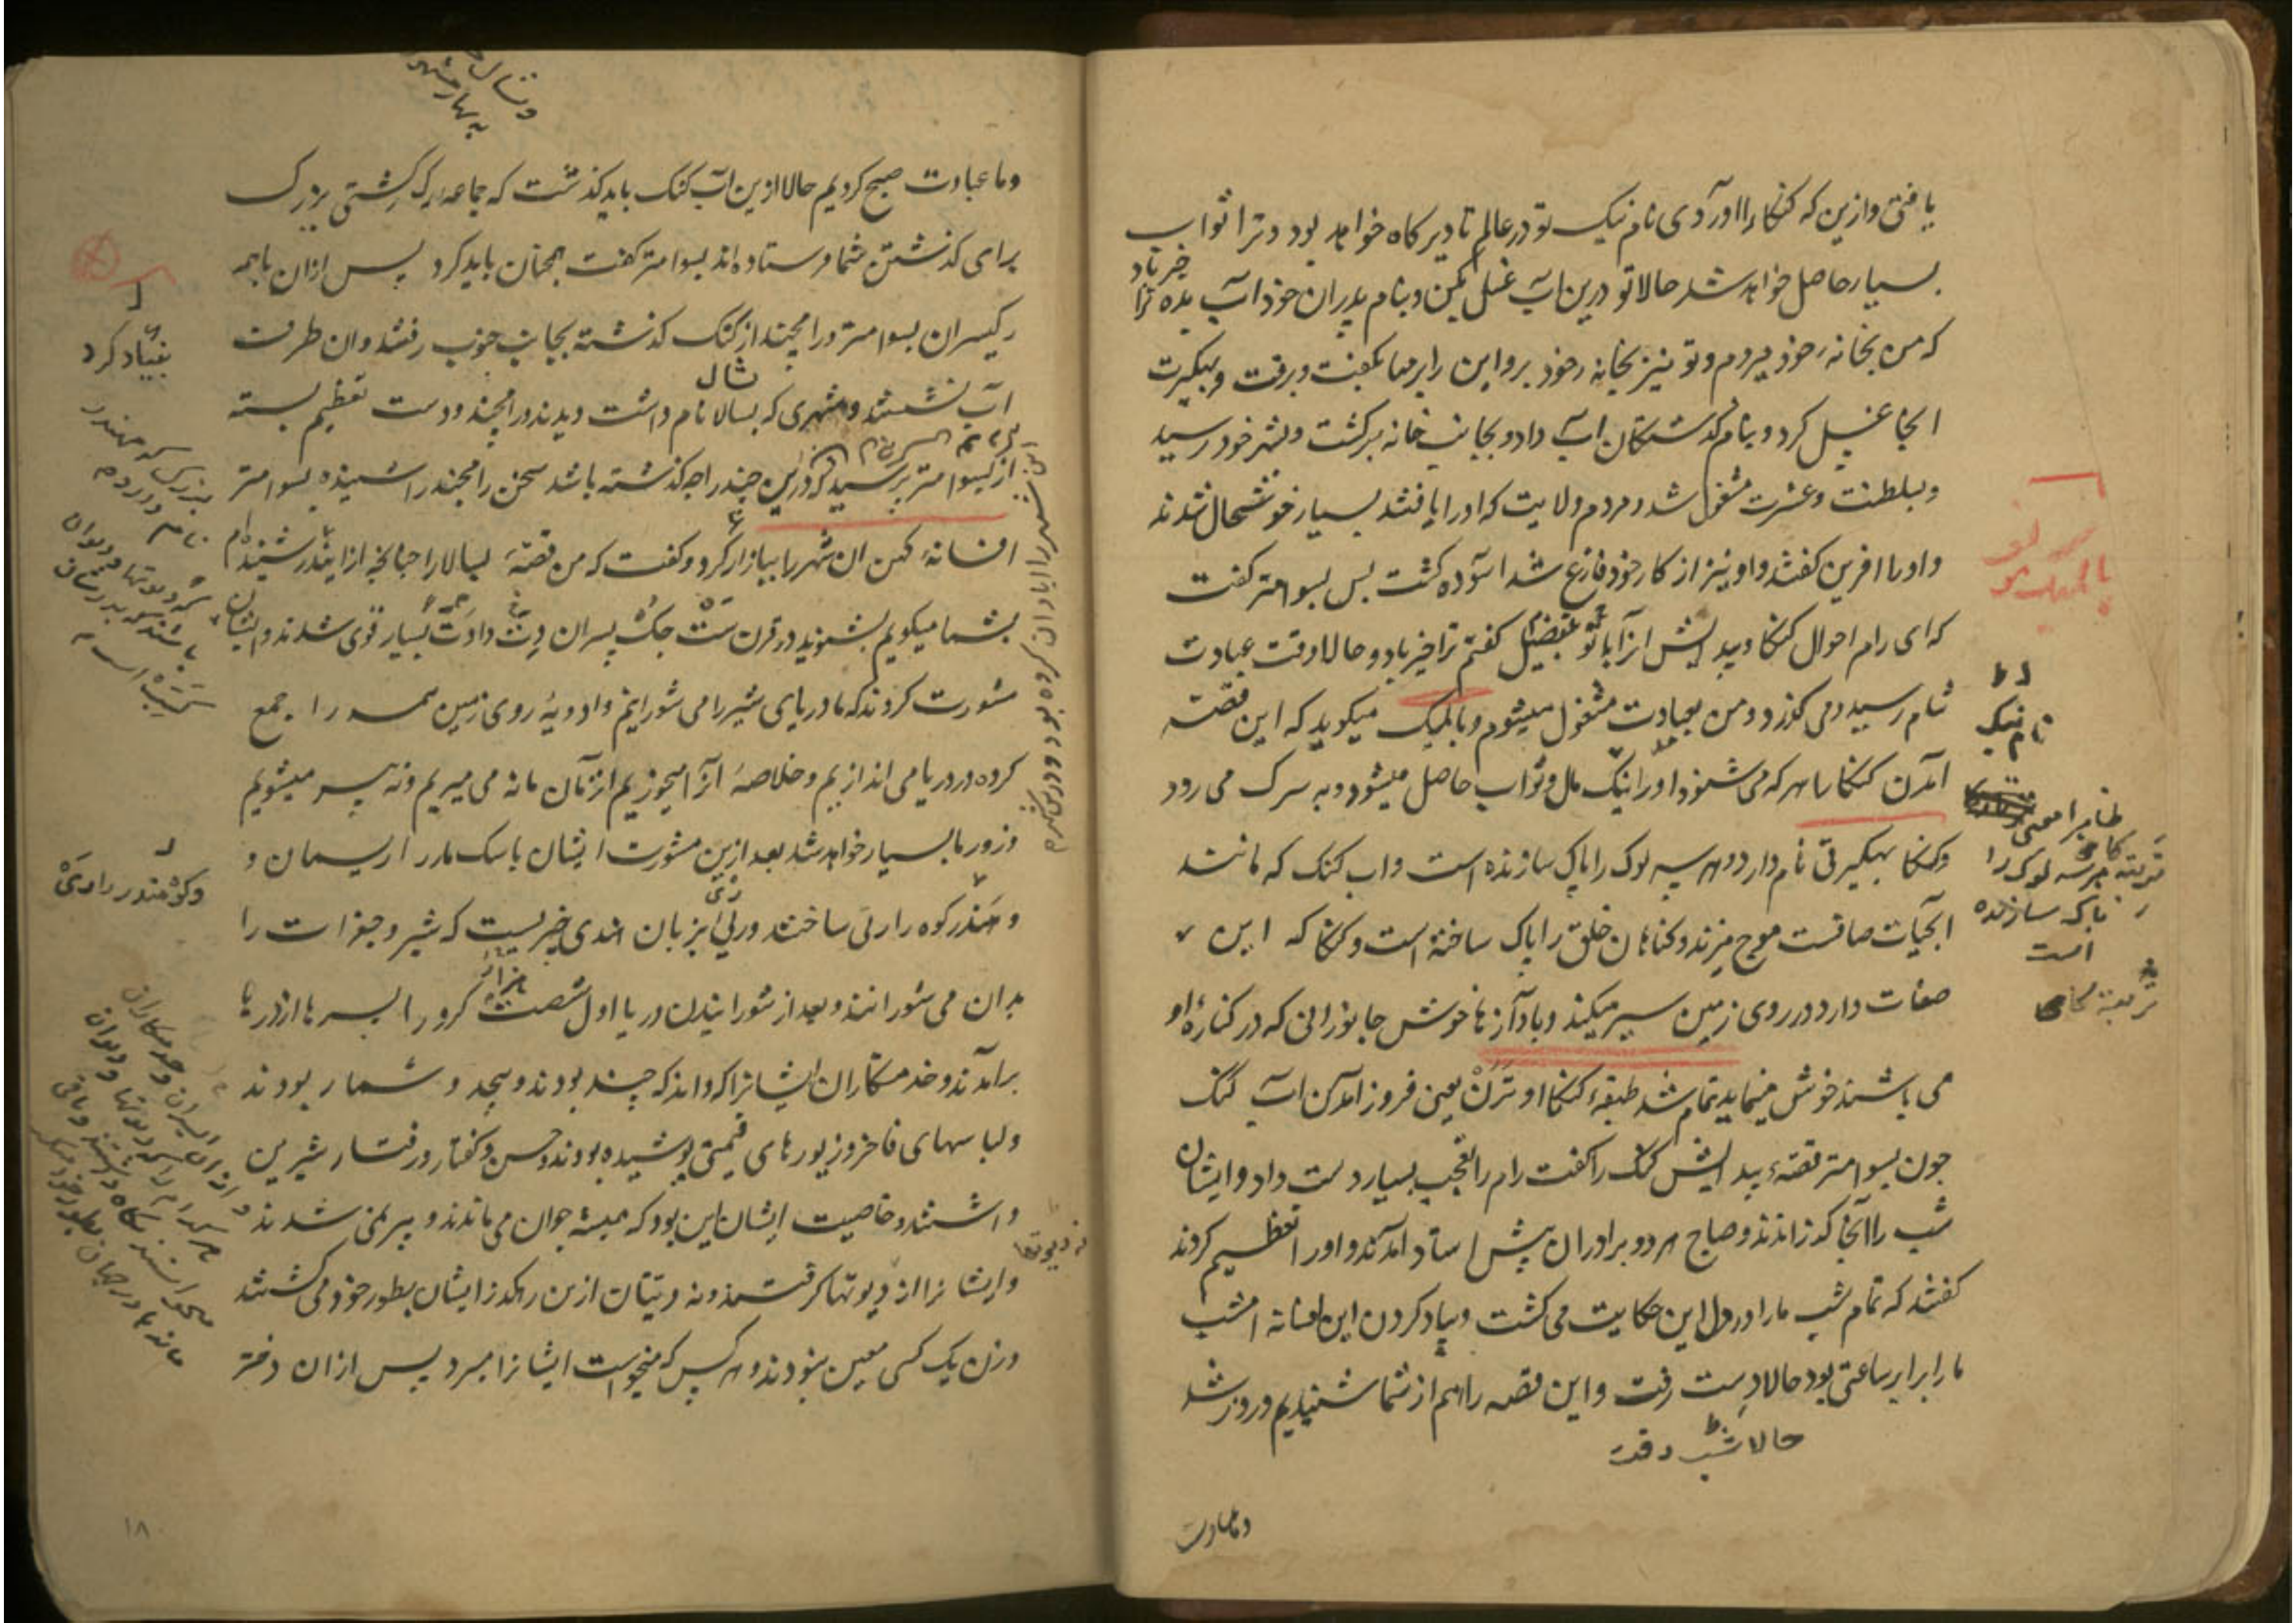 یافتی وازین که کنکا را آوردی نام نیک تو در عالم تا دیر کاه خواهد بود و ترا ثواب
بسیار حاصل خواهد شد حالا تو درین آب غسل بکن و بنام پدران خود آب بده ترا خیر باد
که من بخانه خود میروم و تو نیز بخانه خود برو این را برهما بگفت و برفت و بهکیرت
انجا غسل کرد و بنام گذشتکان آب داد و بجانب خانه برکشت و بشهر خود رسید
و بسلطنت و عشرت مشغول شد و مردم ولایت که او را یافتند بسیار خوشحال شدند
و او را افرین کفتند و او نیز از کار خود فارغ شد اسوده کشت پس بسوامتر کفت
که ای رام احوال کنکا و پیدایش آن را با تو بتفصیل کفتم ترا خیر باد و حالا وقت عبادت
شام رسید و می گذرد و من بعبادت مشغول میشوم و بالمیک میکوید که این قصه
آمدن کنکا را هر که می شنود او را نیک مال و ثواب حاصل میشود و به سرک می رود
و کنکا بهکیرتی نام دارد و هر سه لوک را پاک سازنده است و آب کنک که مانند
ابحیات صافست موج میزند و کناهان خلق را پاک ساخته است و کنکا که این
صفات دارد در روی زمین سیر میکند و با آوازها خوش جانورانی که در کناره او
می باشند خوش مینماید تمام شد طبقه کنکا اوترن یعنی فرود آمدن آب کنک
چون بسوامتر قصه پیدایش کنک را کفت رام را تعجب بسیار دست داد و ایشان
شب را آنجا کذراندند و صباح هر دو برادران پیش استاد آمدند و او را تعظیم کردند
کفتند که تمام شب ما را در دل این حکایت می کشت و بیاد کردن این افسانه امشب
ما را برابر ساعتی بود حالا دست رفت و این قصه را هم از شما شنیدیم و روز شد
حالا شب رفت
و ما عبادت
نام نیک
ظاهرا معنی
هر سه لوک را
پاک سازنده
است
و ما عبادت صبح کردیم حالا ازین آب کنک باید کذشت که جماعه رکه کشتی بزرک
برای کذشتن شما فرستاده اند بسوامتر کفت همچنان باید کرد پس ازان با همه
رکیسران بسوامتر و رامچند از کنک کذشته بجانب جنوب رفتند و ان طرف
آب نشستند و شهری که بسالا نام داشت دیدند و رامچند دو دست تعظیم بسته
از بسوامتر پرسید که درین چند راجه کذشته باشد سخن رامچند را شنیده بسوامتر
افسانه کهن ان شهر را بیاد آر کرد و کفت که من قصه بسالا را چنانچه از ایندر شنیده ام
بشما میکویم بشنوید در قرن ست جک پسران دت و ادت بسیار قوی شدند و ایشان
مشورت کردند که ما دریای شیر را می شورانیم و ادویه روی زمین همه را جمع
کرده در دریا می اندازیم و خلاصه آنرا میخوریم از آن ما نه می میریم و نه پیر میشویم
و زور ما بسیار خواهد شد بعد ازین مشورت ایشان باسک مار را ریسمان و
و مندر کوه را رئی ساختند و رئی بزبان هندی چیزیست که شیر و جغرات را
بدان می شورانند و بعد از شورانیدن دریا اول شصت هزار کرور اپسرها از دریا
برآمدند و خدمتکاران ایشانرا که داند که چند بودند و بیحد و شمار بودند
و لباسهای فاخر و زیورهای قیمتی پوشیده بودند و حسن و کفتار و رفتار شیرین
داشتند و خاصیت ایشان این بود که همیشه جوان می ماندند و پیر نمی شدند
و ایشانرا نه دیوتها کرفتند و نه دیتان ازین رهکذر ایشان بطور خود می کشتند
و زن یک کسی معین نبودند و هر کس که میخواست ایشانرا میبرد پس ازان دختر
بنیاد کرد
نه دیوتها
۱۸